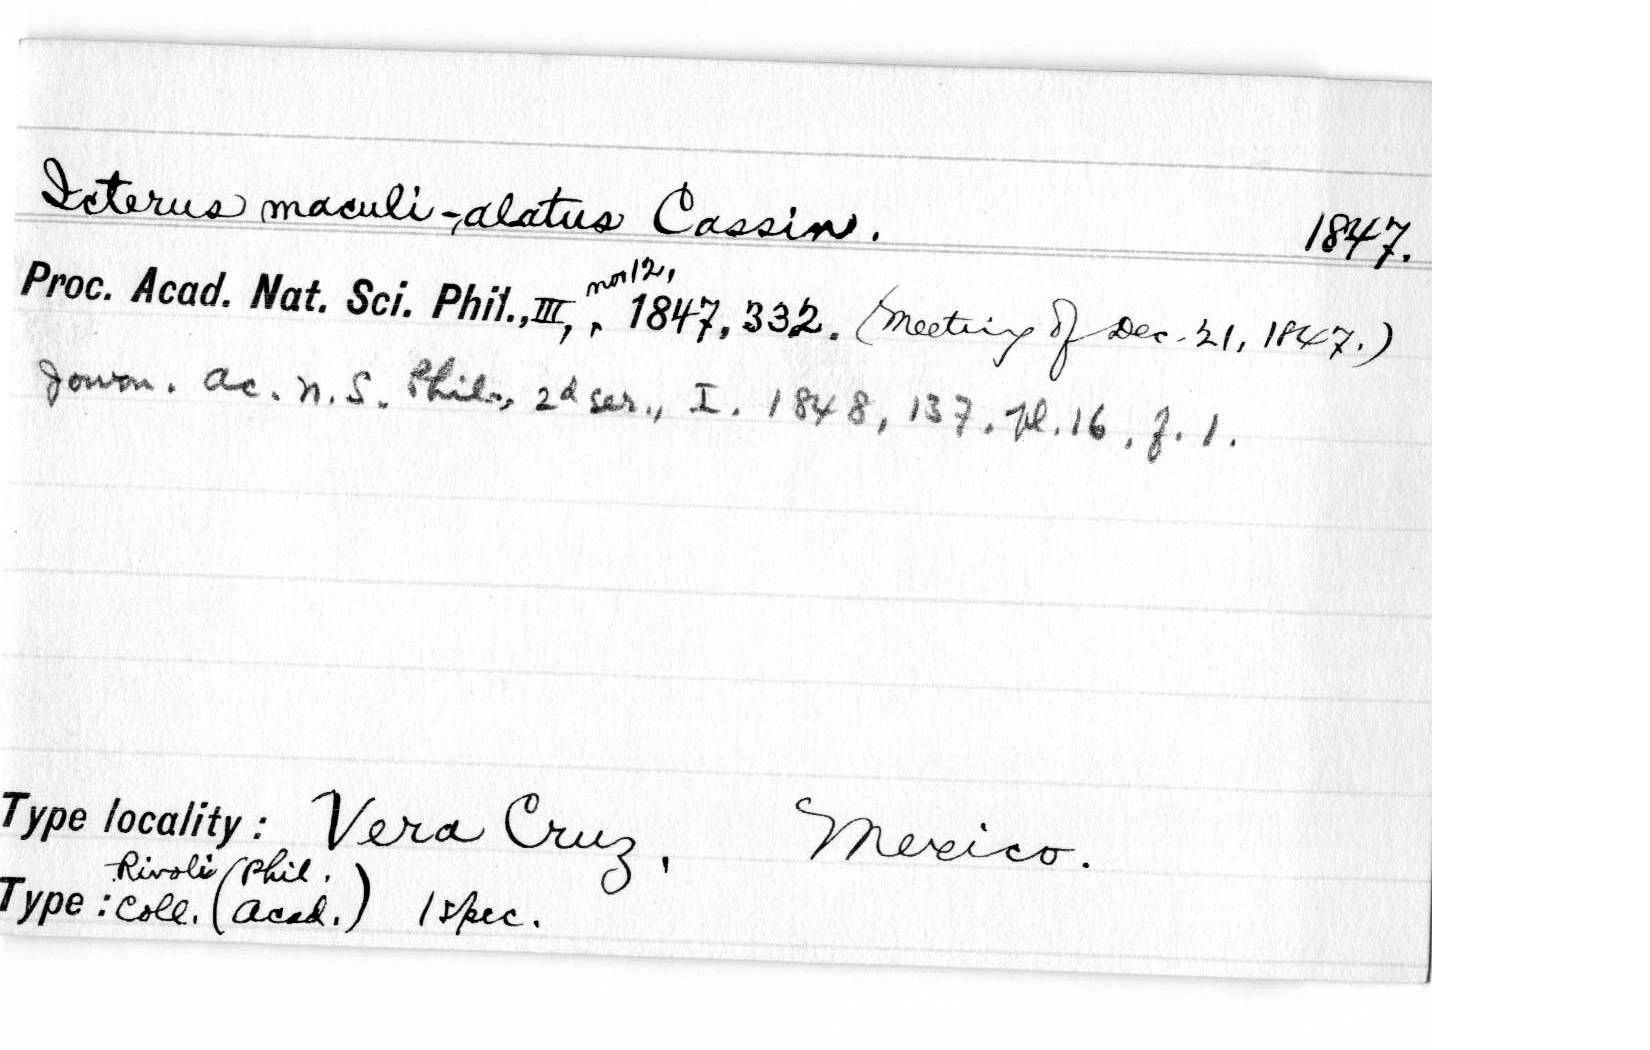 Icterus maculi-alatus Cassin. 1847.
Proc. Acad. Nat. Sci. Phil., III, no 12, 1847, 332. (Meeting of Dec. 21, 1847.)
Journ. Ac. N. S. Phil., 2d ser., I. 1848, 137. pl. 16, f. 1.
Type locality: Vera Cruz, Mexico.
Rivoli (Phil.
Type: Coll. (Acad.) 1 spec.